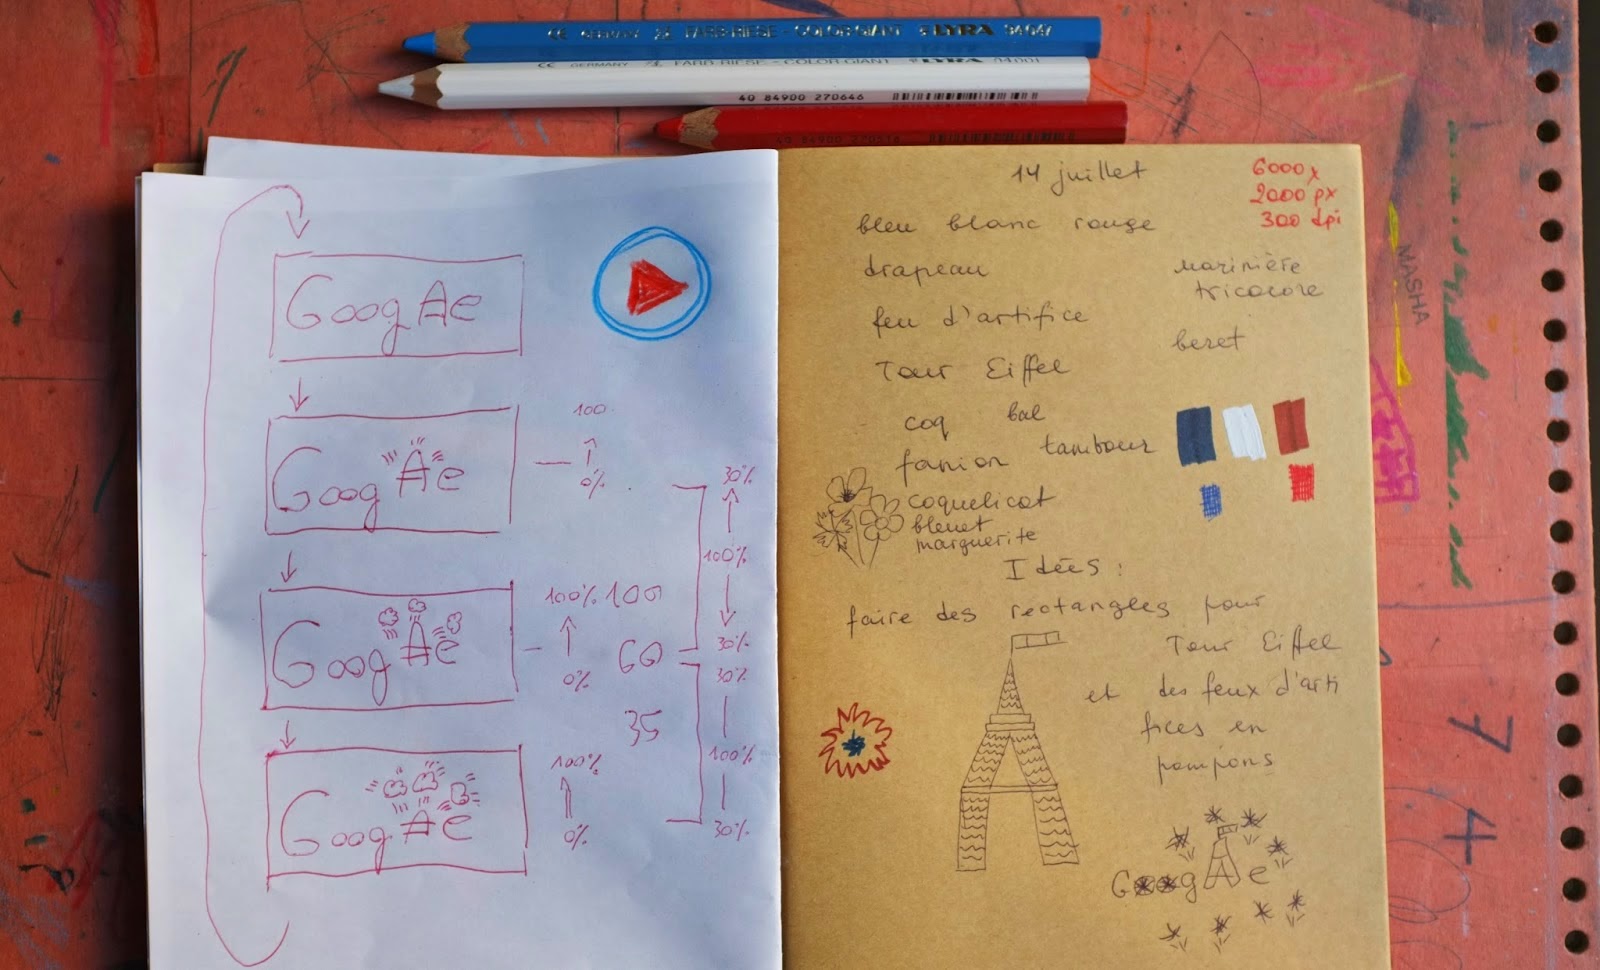 CE GERMANY FARB-RIESE - COLOR-GIANT LYRA 94 047
CE GERMANY FARB-RIESE - COLOR-GIANT LYRA 94 001
40 84900 270646
GoogAe
GoogAe
100
0%
GoogAe
100%
0%
100
60
35
GoogAe
100%
0%
30%
100%
30%
30%
100%
30%
14 juillet
6000x
2000 px
300 dpi
bleu blanc rouge
drapeau
marinière
tricolore
feu d'artifice
beret
Tour Eiffel
coq
bal
fanion
tambour
coquelicot
bleuet
marguerite
Idées :
faire des rectangles pour
Tour Eiffel
et des feux d'arti
fices en
pompons
GoogAe
MASHA
7
4